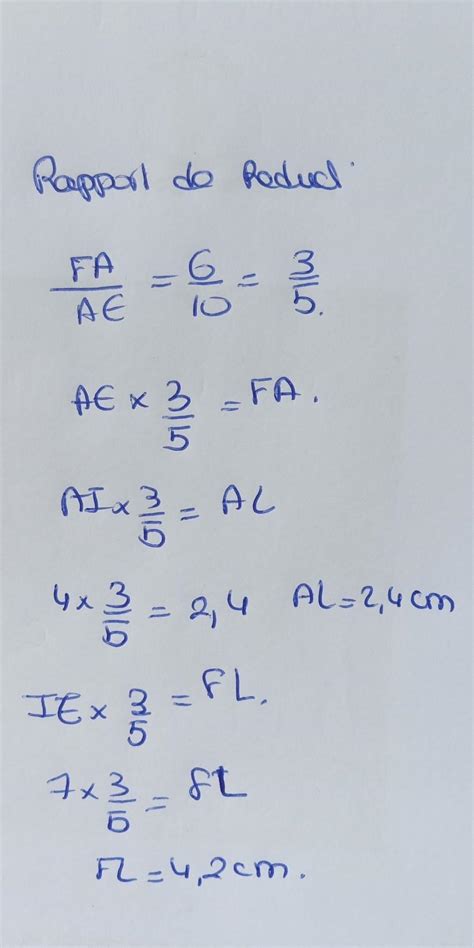 Rapport de Reduct.
FA/AE = 6/10 = 3/5.
AE × 3/5 = FA.
AI × 3/5 = AL
4 × 3/5 = 2,4 AL = 2,4 cm
IE × 3/5 = FL.
7 × 3/5 = FL
FL = 4,2 cm.